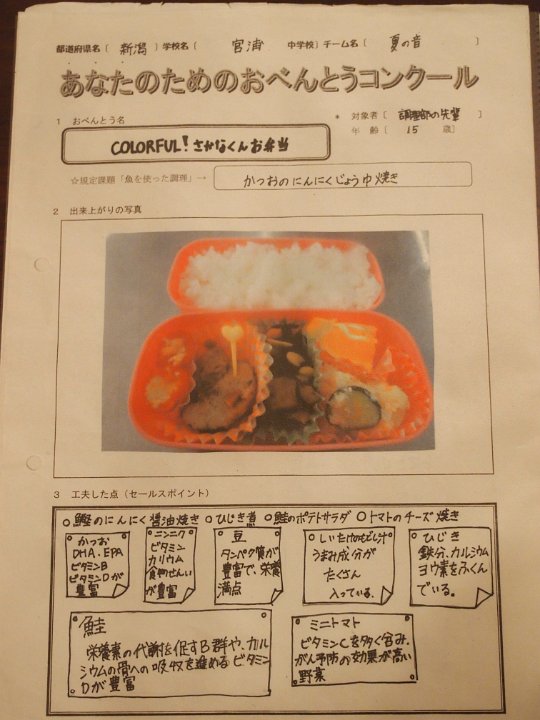 都道府県名〔 新潟 〕学校名〔 宮浦 中学校〕チーム名〔 夏の音 〕
あなたのためのおべんとうコンクール
1 おべんとう名
* 対象者〔 調理部の先輩 〕
年 齢〔 15 歳〕
COLORFUL! さかなくんお弁当
☆規定課題「魚を使った調理」→ かつおのにんにくじょうゆ焼き
2 出来上がりの写真
3 工夫した点(セールスポイント)
○鰹のにんにく醤油焼き ○ひじき煮 ○鮭のポテトサラダ ○トマトのチーズ焼き
かつお
DHA、EPA
ビタミンB
ビタミンDが
豊富
ニンニク
ビタミン
カリウム
食物せんい
が豊富
豆
タンパク質が
豊富で、栄養
満点
しいたけのもどし汁
うまみ成分が
たくさん
入っている。
ひじき
鉄分、カルシウム
ヨウ素をふくん
でいる。
鮭
栄養素の代謝を促すB群や、カル
シウムの骨への吸収を進めるビタミン
Dが豊富
ミニトマト
ビタミンCを多く含み、
がん予防の効果が高い
野菜